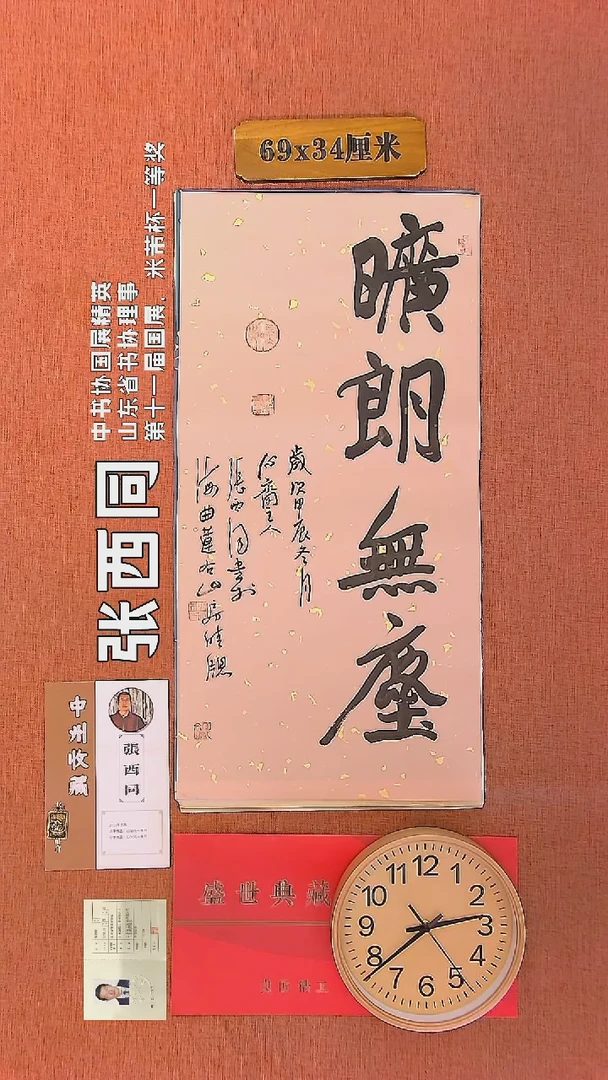 69x34厘米
曠
朗
無
塵
歲次甲辰冬月
張西同書於
中书协国展精英
山东省书协理事
第十一届国展、米芾杯一等奖
张西同
中州收藏
張西同
盛世典藏
12
1
2
3
4
5
6
7
8
9
10
11